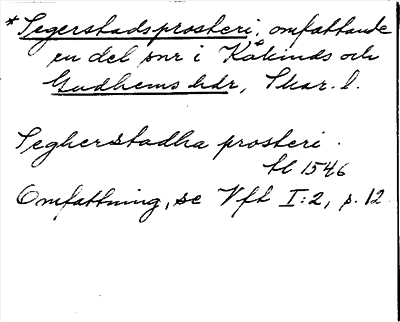 * Segerstadsprosteri, omfattande
en del snr i Kåkinds och
Gudhems hdr, Skar. l.
Segherstadha prosteri.
hl 1546
Omfattning, se Vfk I:2, s. 12.